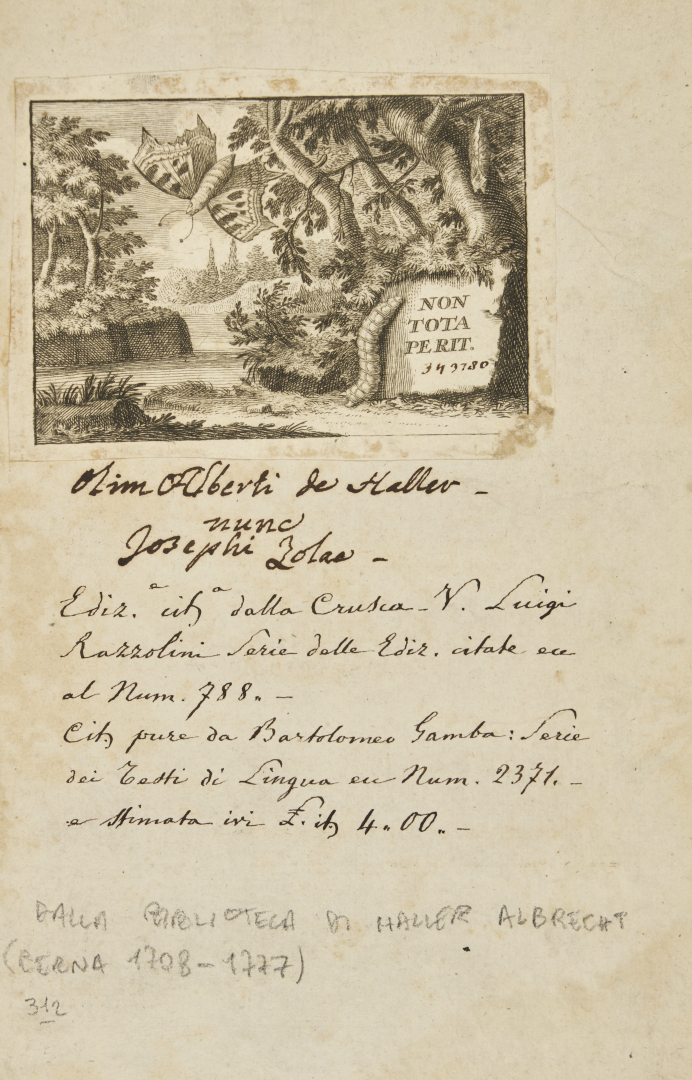 NON
TOTA
PERIT.
Olim Alberti de Haller -
nunc
Josephi Zolae -
Ediz.e cit.a dalla Crusca - V. Luigi
Razzolini Serie delle Ediz. citate ec
al Num. 788. -
Cit. pure da Bartolomeo Gamba: Serie
dei Testi di Lingua ec Num. 2371. -
e stimata ivi £. it. 4.00. -
DALLA BIBLIOTECA DI HALLER ALBRECHT
(BERNA 1708-1777)
312